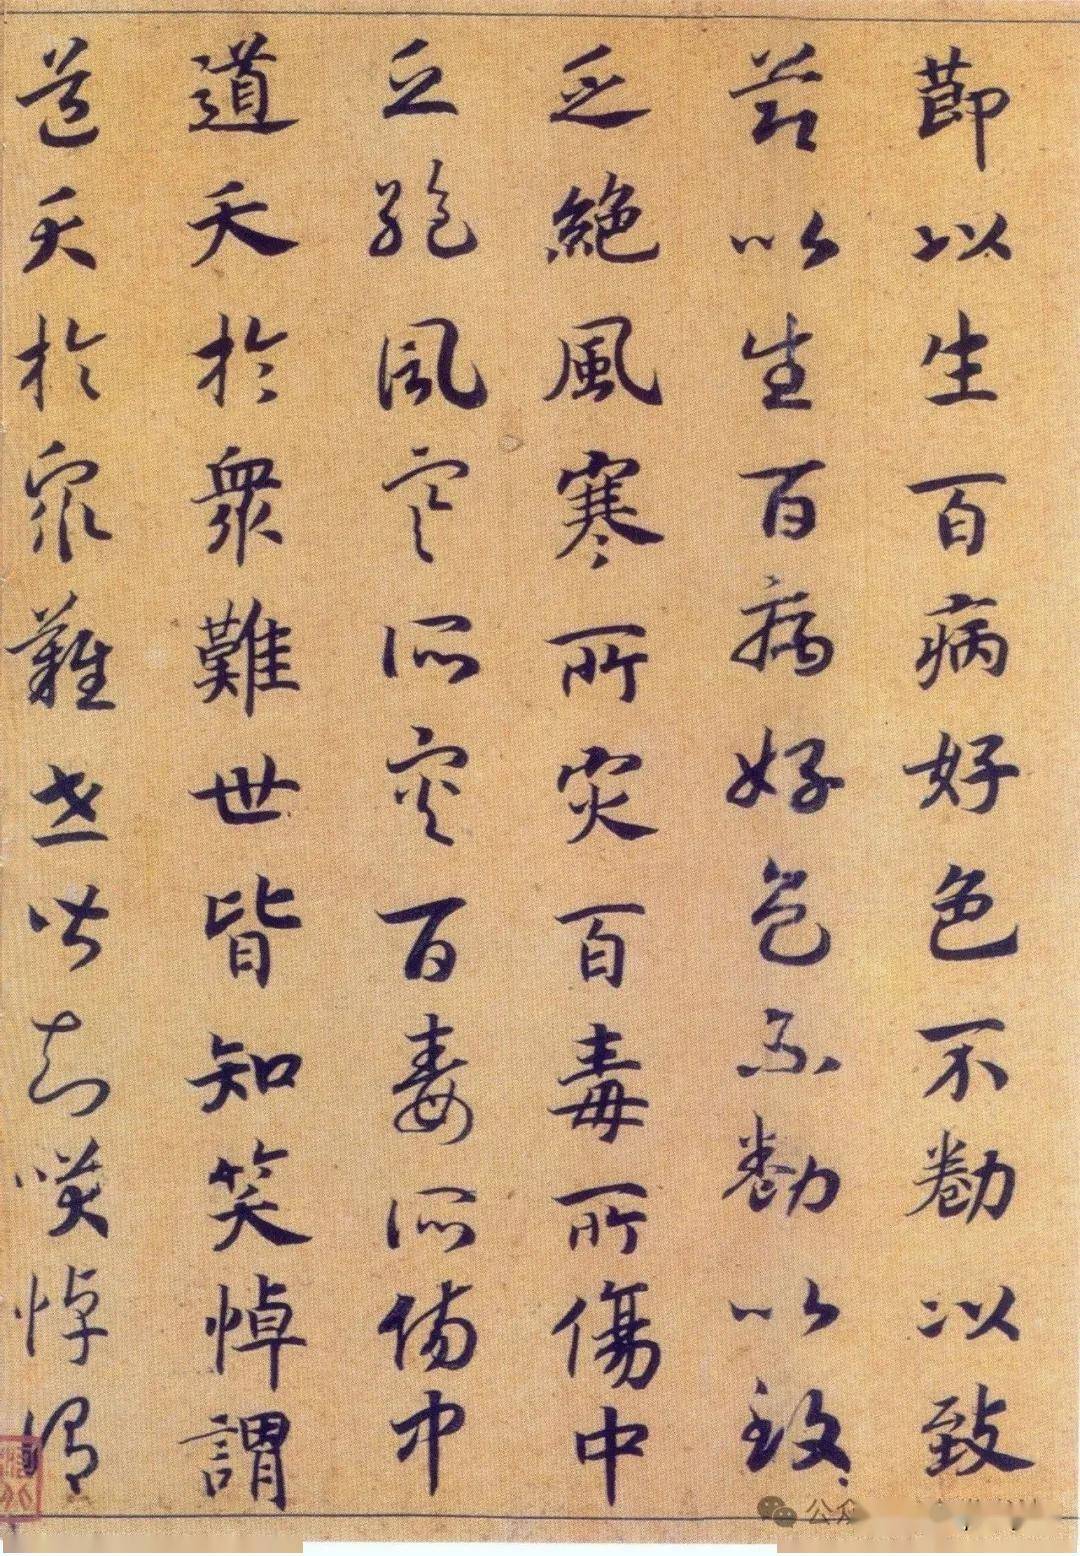 節以生百病好色不勌以致
節以生百病好色不勌以致
乏絶風寒所灾百毒所傷中
乏絶風寒所灾百毒所傷中
道夭於衆難世皆知笑悼謂
道夭於衆難世皆知笑悼謂
公众